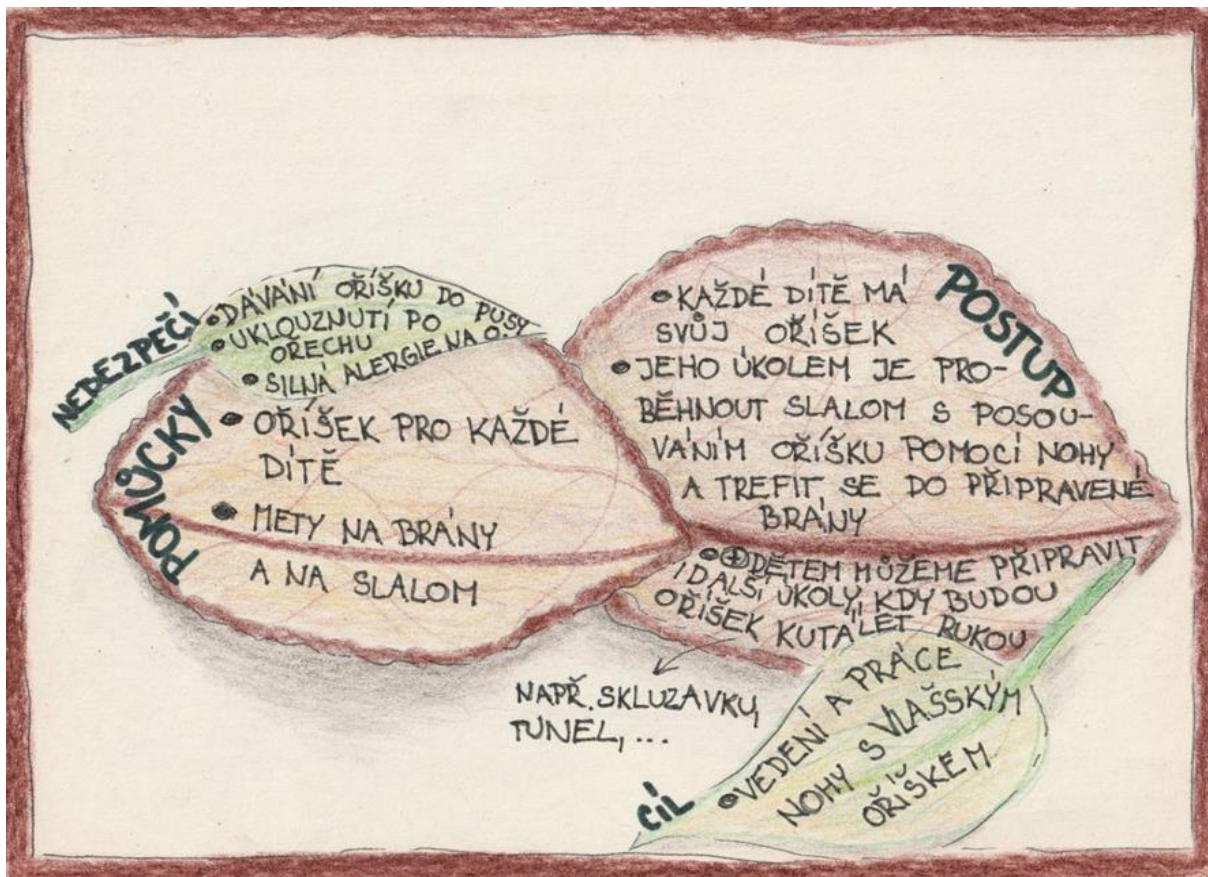 NEBEZPEČÍ
• DÁVÁNÍ OŘÍŠKU DO PUSY
• UKLOUZNUTÍ PO
OŘECHU
• SILNÁ ALERGIE NA O.
POMŮCKY
• OŘÍŠEK PRO KAŽDÉ
DÍTĚ
• METY NA BRÁNY
A NA SLALOM
POSTUP
• KAŽDÉ DÍTĚ MÁ
SVŮJ OŘÍŠEK
• JEHO ÚKOLEM JE PRO-
BĚHNOUT SLALOM S POSOU-
VÁNÍM OŘÍŠKU POMOCÍ NOHY
A TREFIT SE DO PŘIPRAVENÉ
BRÁNY
• + DĚTEM MŮŽEME PŘIPRAVIT
I DALŠÍ ÚKOLY, KDY BUDOU
OŘÍŠEK KUTÁLET RUKOU
NAPŘ. SKLUZAVKU,
TUNEL, ...
CÍL
• VEDENÍ A PRÁCE
NOHY S VLAŠSKÝM
OŘÍŠKEM